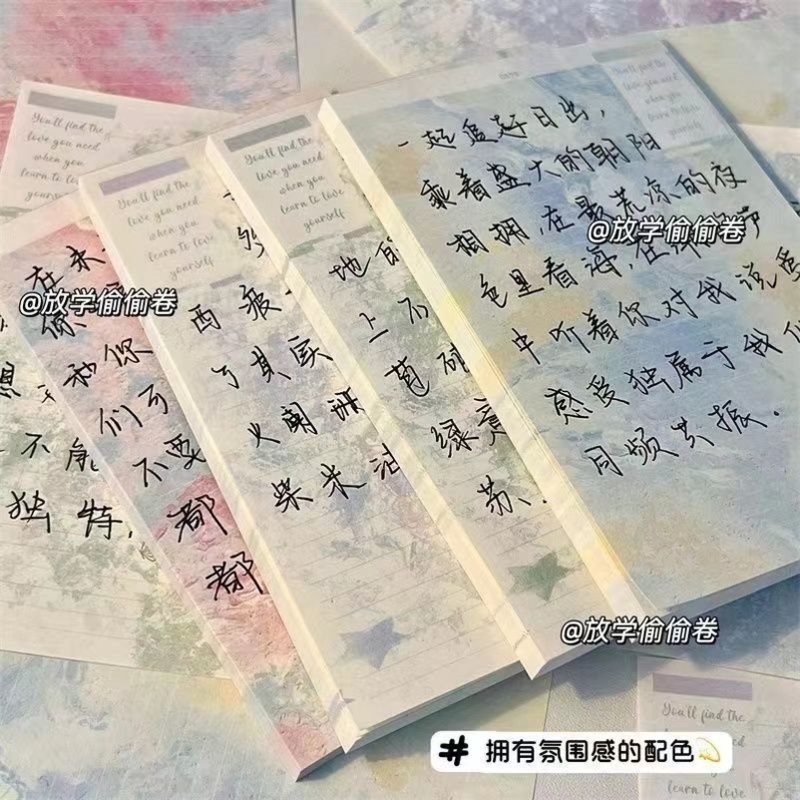 You'll find the
love you need
when you
learn to love
yourself
You'll find the
love you need
when you
learn to love
yourself
You'll find the
love you need
when you
learn to love
yourself
You'll find the
love you need
when you
yourself
一起追赶日出，
乘着盛大的朝阳
相拥，在最荒凉的夜
色里看海，在
中听着你对我说爱
感受独属于我们
同频共振．
@放学偷偷卷
地的
上不
苔
绿意
苏
西 疲
了其实
火阑珊
柴米油
在未
你
和你
们可
不要
都
都
@放学偷偷卷
想
不能
独特，
@放学偷偷卷
You'll find the
love you need
when you
learn to love
# 拥有氛围感的配色💫